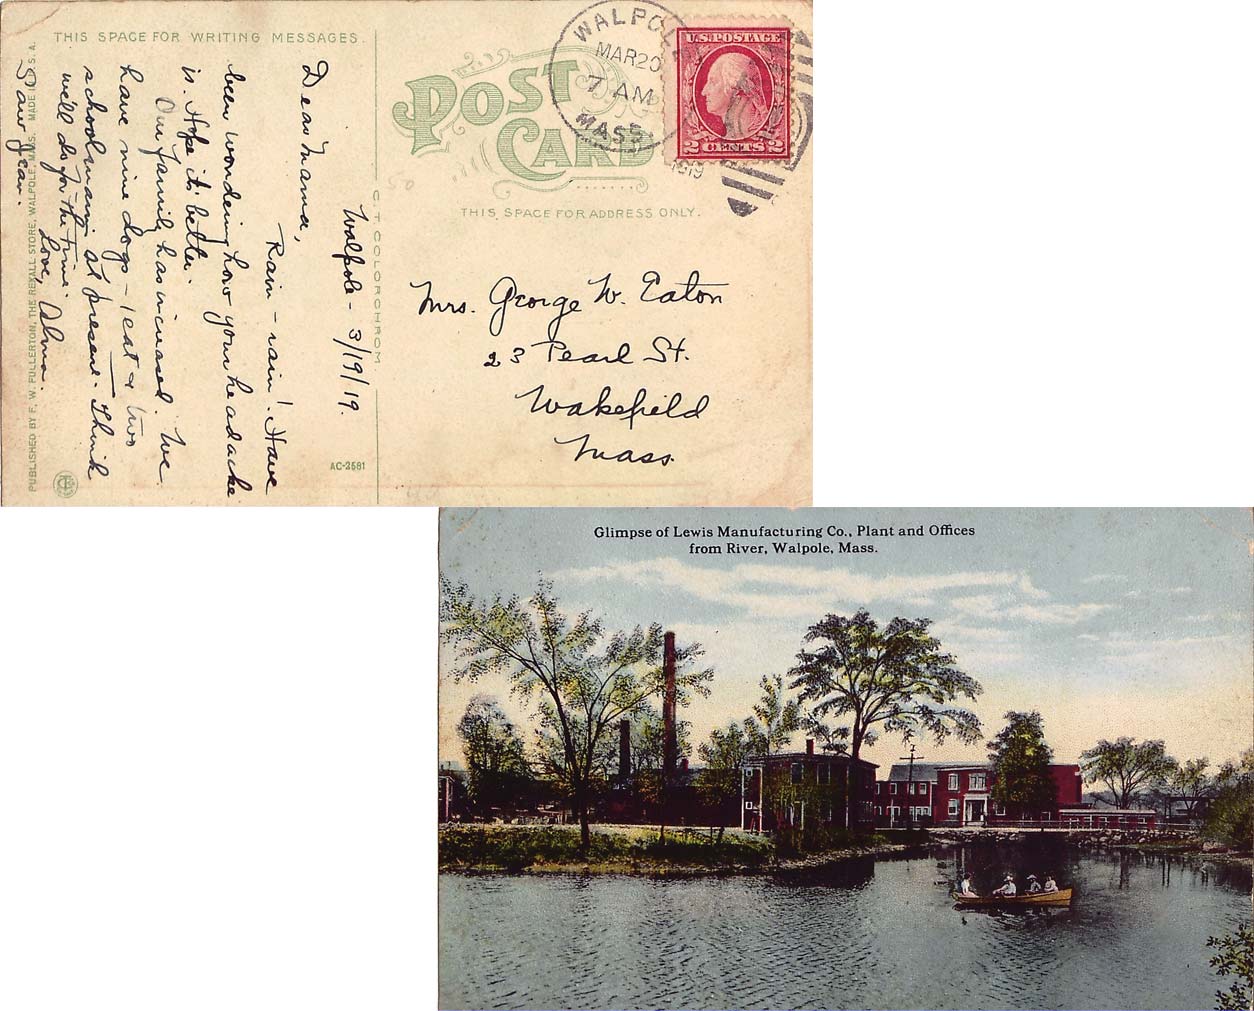 THIS SPACE FOR WRITING MESSAGES.
POST
CARD
THIS SPACE FOR ADDRESS ONLY.
WALPOLE
MAR 20
7 AM
1919
MASS.
U.S. POSTAGE
2 CENTS 2
Walpole - 3/19/19.
Dear Mama,
Rain - rain! Have
been wondering how your headache
is. Hope it's better.
Our family has increased. We
have nine dogs - 1 cat & two
at present. Think
we'll do for the time.
Love, Alma.
Saw Jean.
Mrs. George W. Eaton
23 Pearl St.
Wakefield
Mass.
C. T. COLORCHROM
AC-2581
CT
PUBLISHED BY F. W. FULLERTON, THE REXALL STORE, WALPOLE, MASS. MADE IN U. S. A.
Glimpse of Lewis Manufacturing Co., Plant and Offices
from River, Walpole, Mass.